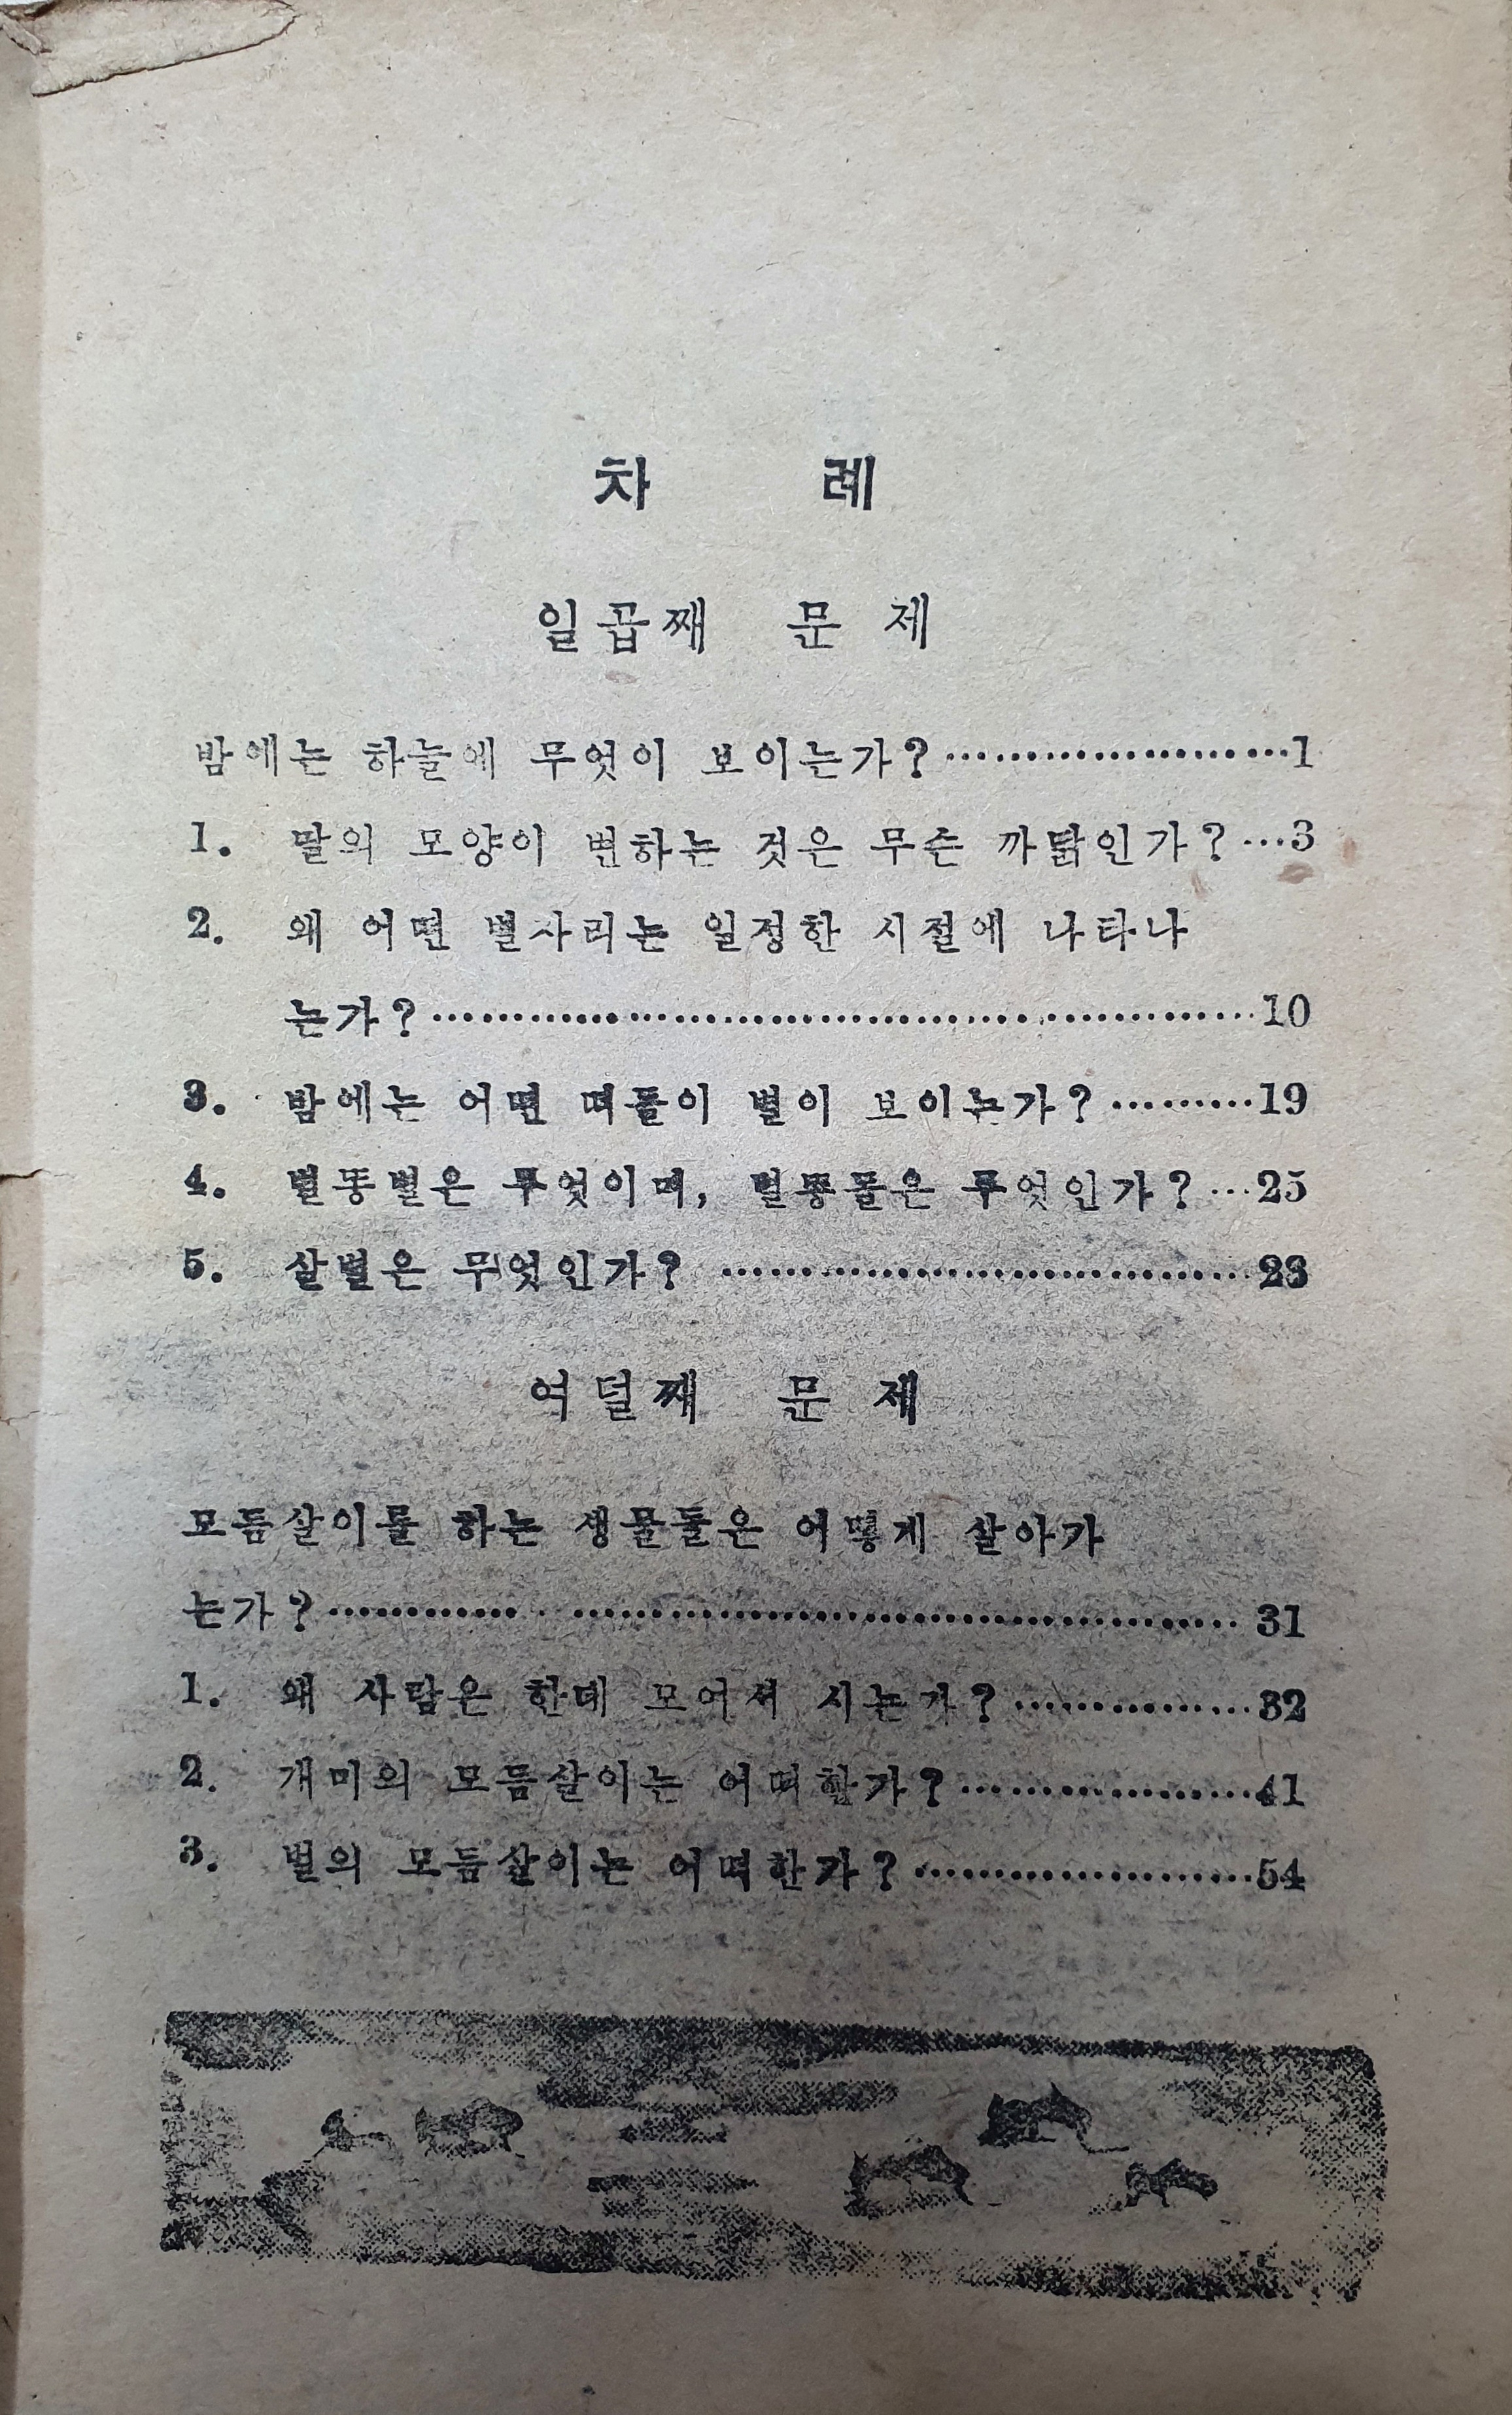 차 례
일곱째 문 제
밤에는 하늘에 무엇이 보이는가?……………………1
1. 딸의 모양이 변하는 것은 무슨 까닭인가?…3
2. 왜 어떤 별자리는 일정한 시절에 나타나
는가?……………………………………………………10
3. 밤에는 어떤 떠돌이 별이 보이는가?………19
4. 별똥별은 무엇이며, 별똥돌은 무엇인가?…25
5. 살별은 무엇인가? ………………………………28
여덟째 문 제
모듬살이를 하는 생물들은 어떻게 살아가
는가?……………………………………………………31
1. 왜 사람은 한데 모여서 사는가?……………32
2. 개미의 모듬살이는 어떠한가?…………………41
3. 벌의 모듬살이는 어떠한가?……………………54